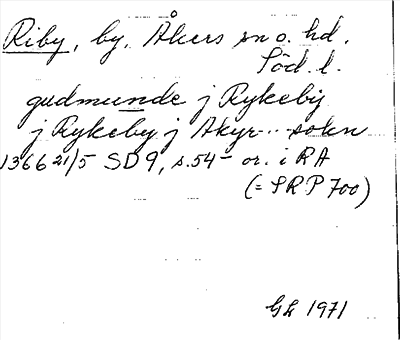 Riby, by, Åkers sn o. hd.
Söd. l.
gudmunde j Rykeby
j Rykeby j Akyr---sokn
1366 21/5 SD 9, s. 54 - or. i RA
(= SRP 700)
GL 1971